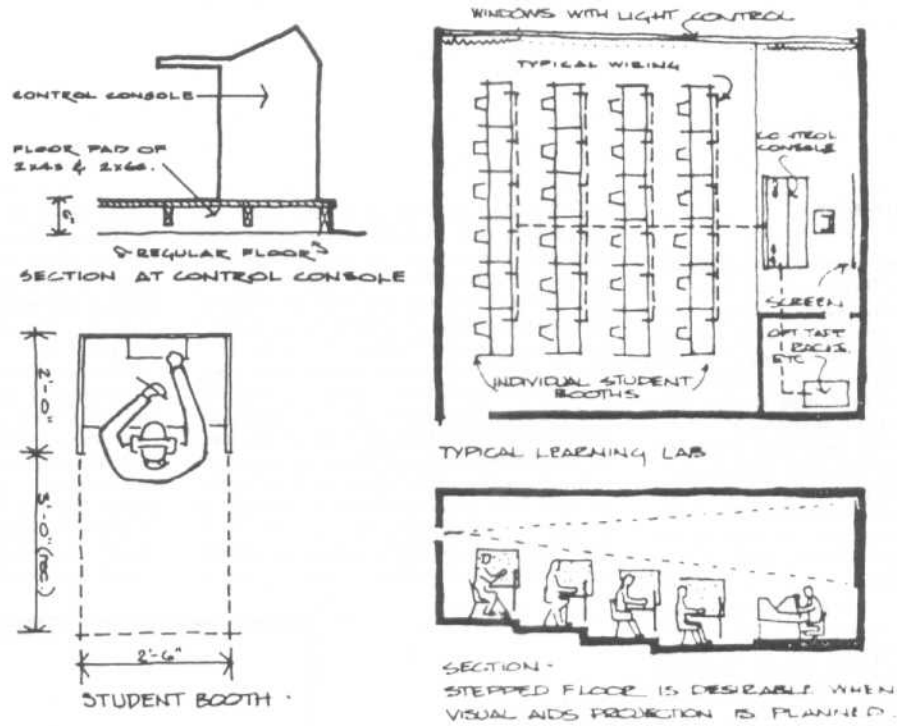 CONTROL CONSOLE
FLOOR PAD OF
2x4s & 2x6s.
6"
REGULAR FLOOR
SECTION AT CONTROL CONSOLE
2'-0"
3'-0" (
2'-6"
STUDENT BOOTH.
WINDOWS WITH LIGHT CONTROL
TYPICAL WIRING
CONTROL
CONSOLE
SCREEN
RACKS
ETC
INDIVIDUAL STUDENT
BOOTHS
TYPICAL LEARNING LAB
SECTION-
STEPPED FLOOR IS DESIRABLE WHEN
VISUAL AIDS PROJECTION IS PLANNED.